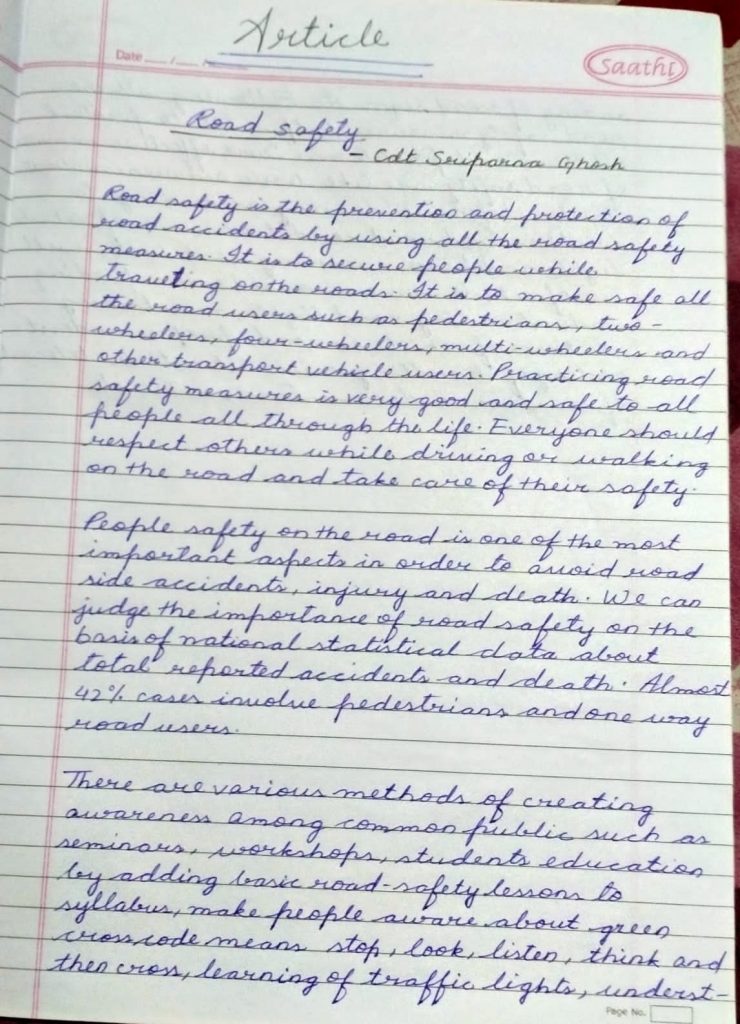 Article
Date
Saathi
Road safety
- Cdt Sriparna Ghosh
Road safety is the prevention and protection of
road accidents by using all the road safety
measures. It is to secure people while
traveling on the roads. It is to make safe all
the road users such as pedestrians, two-
wheelers, four-wheelers, multi-wheelers and
other transport vehicle users. Practicing road
safety measures is very good and safe to all
people all through the life. Everyone should
respect others while driving or walking
on the road and take care of their safety.
People safety on the road is one of the most
important aspects in order to avoid road
side accidents, injury and death. We can
judge the importance of road safety on the
basis of national statistical data about
total reported accidents and death. Almost
42% cases involve pedestrians and one way
road users.
There are various methods of creating
awareness among common public such as
seminars, workshops, students education
by adding basic road-safety lessons to
syllabus, make people aware about green
cross code means stop, look, listen, think and
then cross, learning of traffic lights, underst-
Page No.